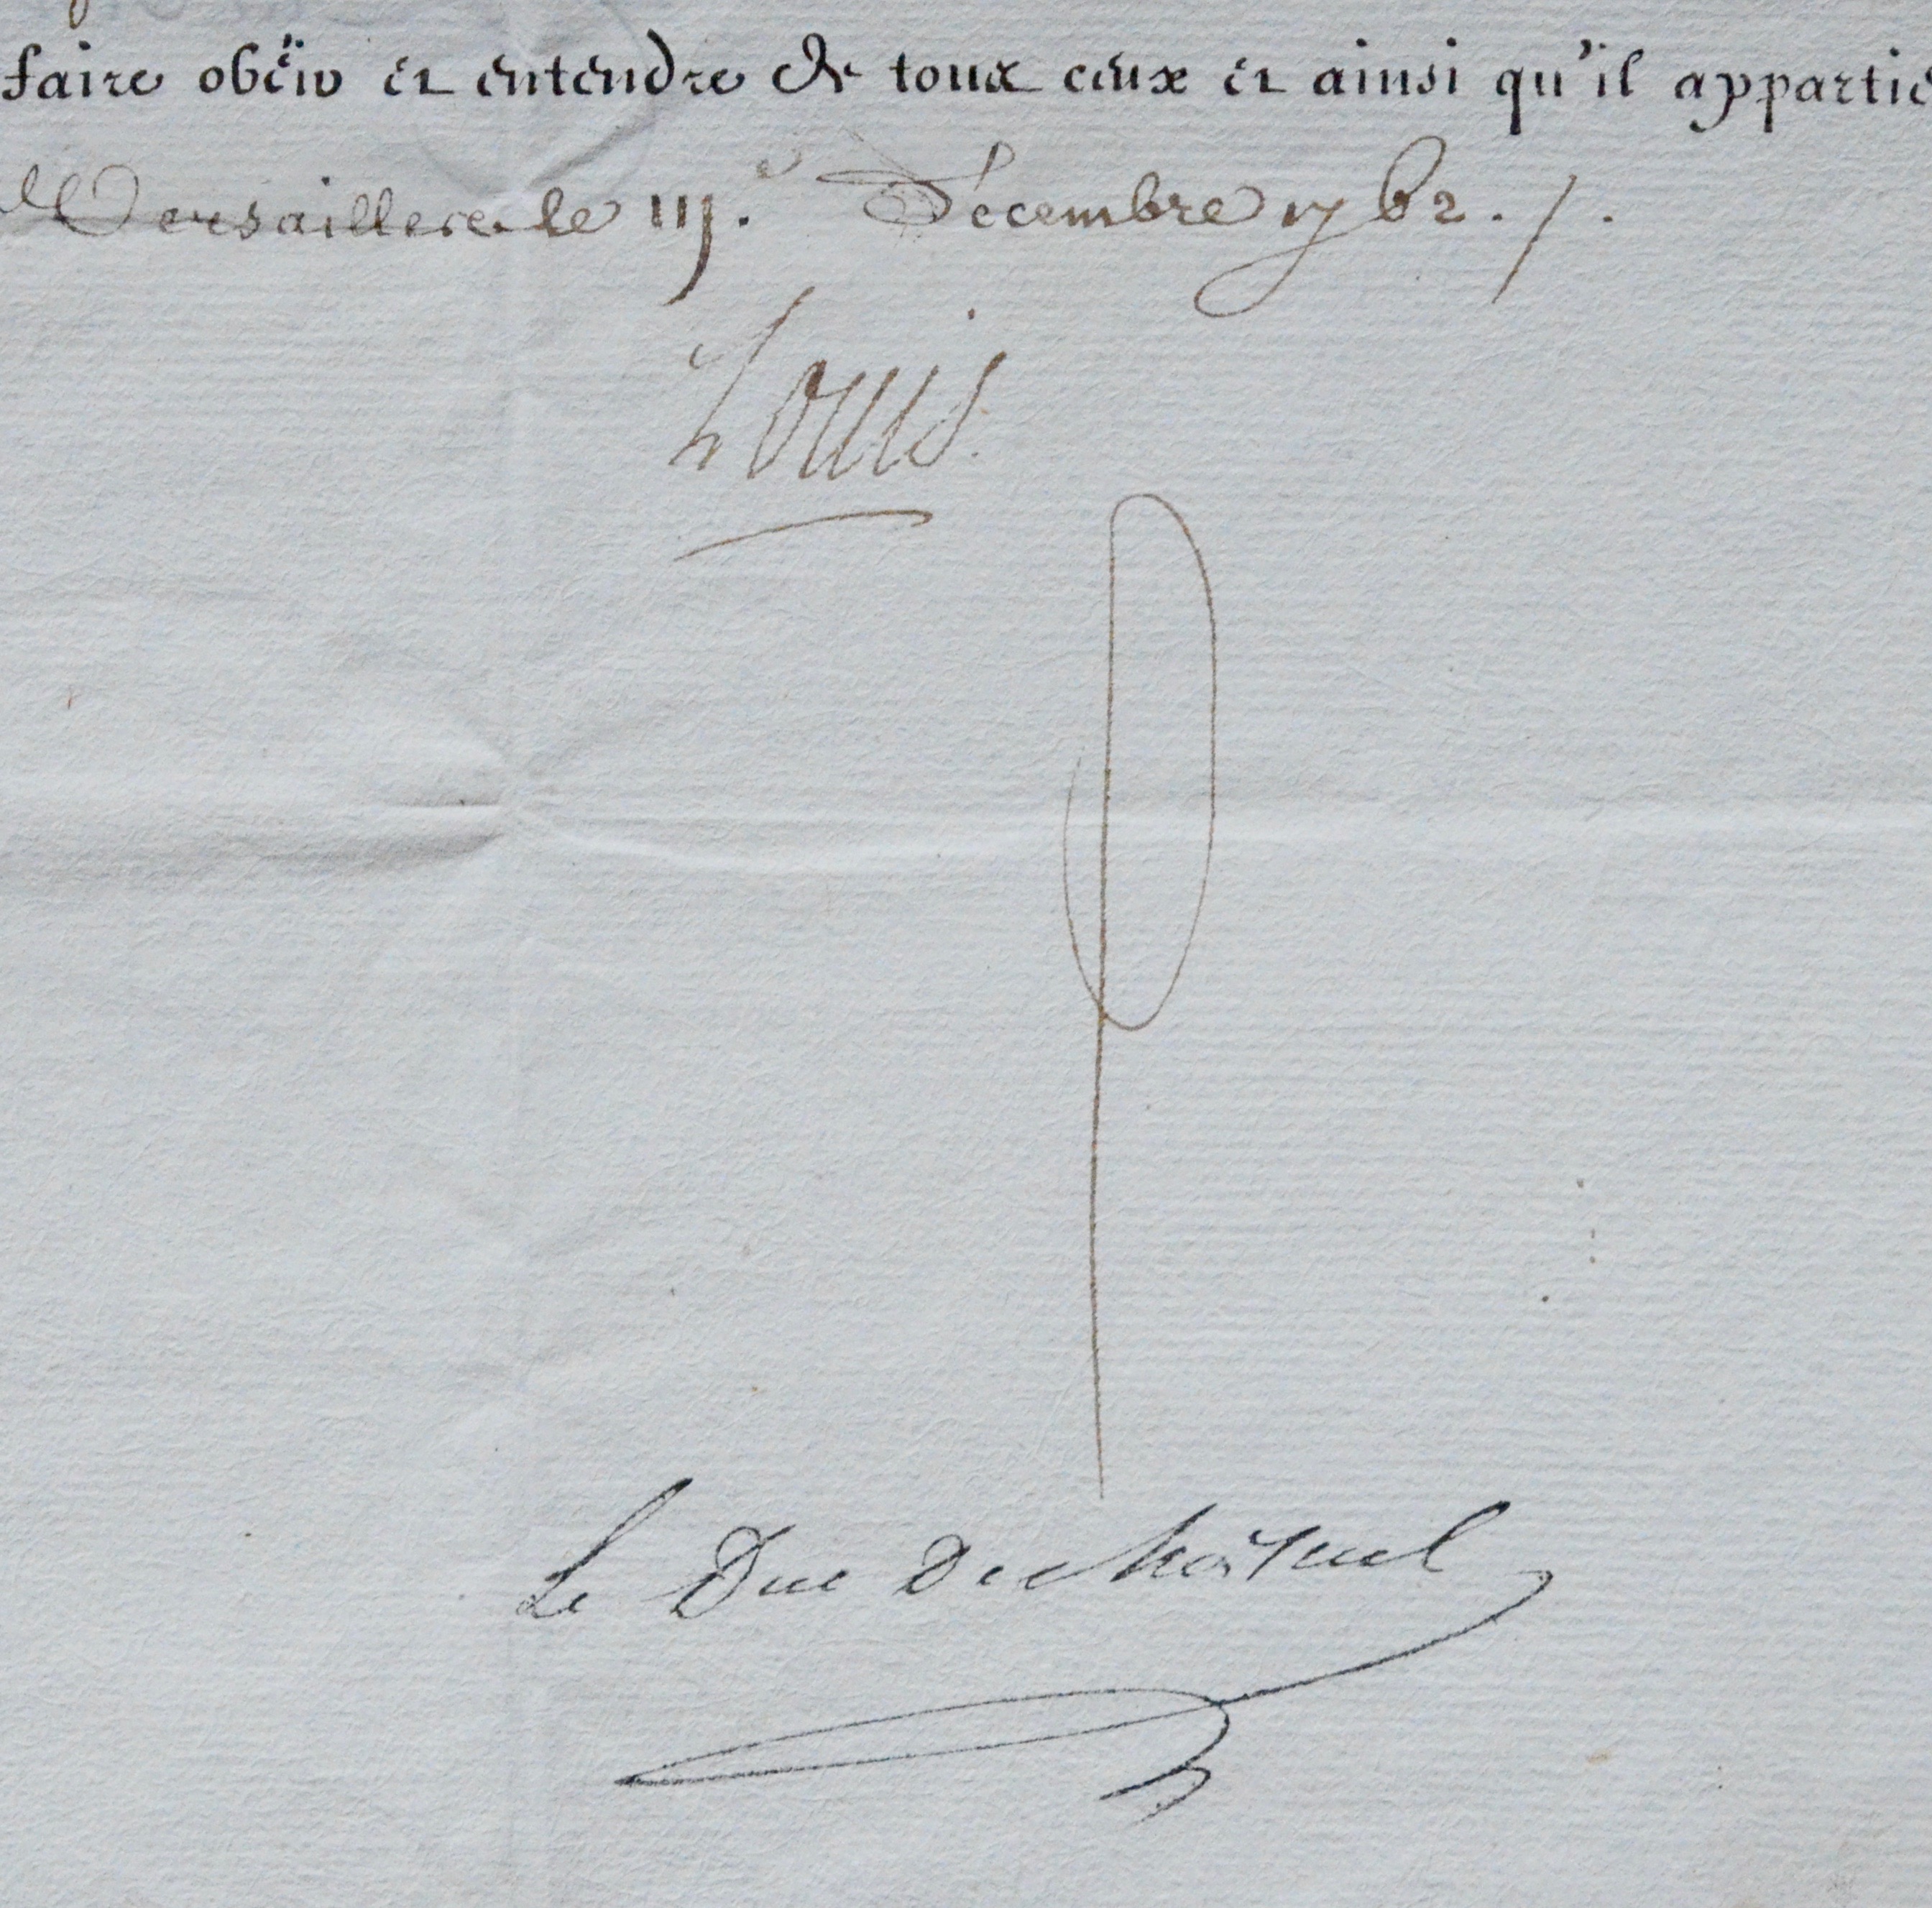 faire obëir et entendre de tous ceux et ainsi qu'il appartie
Versailles ce le iij.e Décembre 1762./.
Louis
Le Duc De choiseul